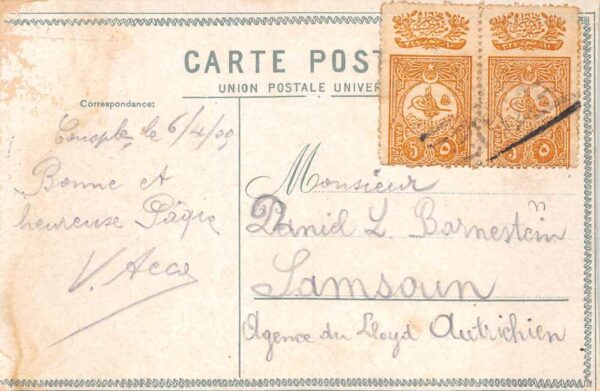 CARTE POST
UNION POSTALE UNIVER
Correspondance:
Conople le 6/4/09
Bonne et
heureuse Pâque
Monsieur
Daniel L. Barnestein
Samsoun
Agence du Lloyd Autrichien
5
٥
5
٥